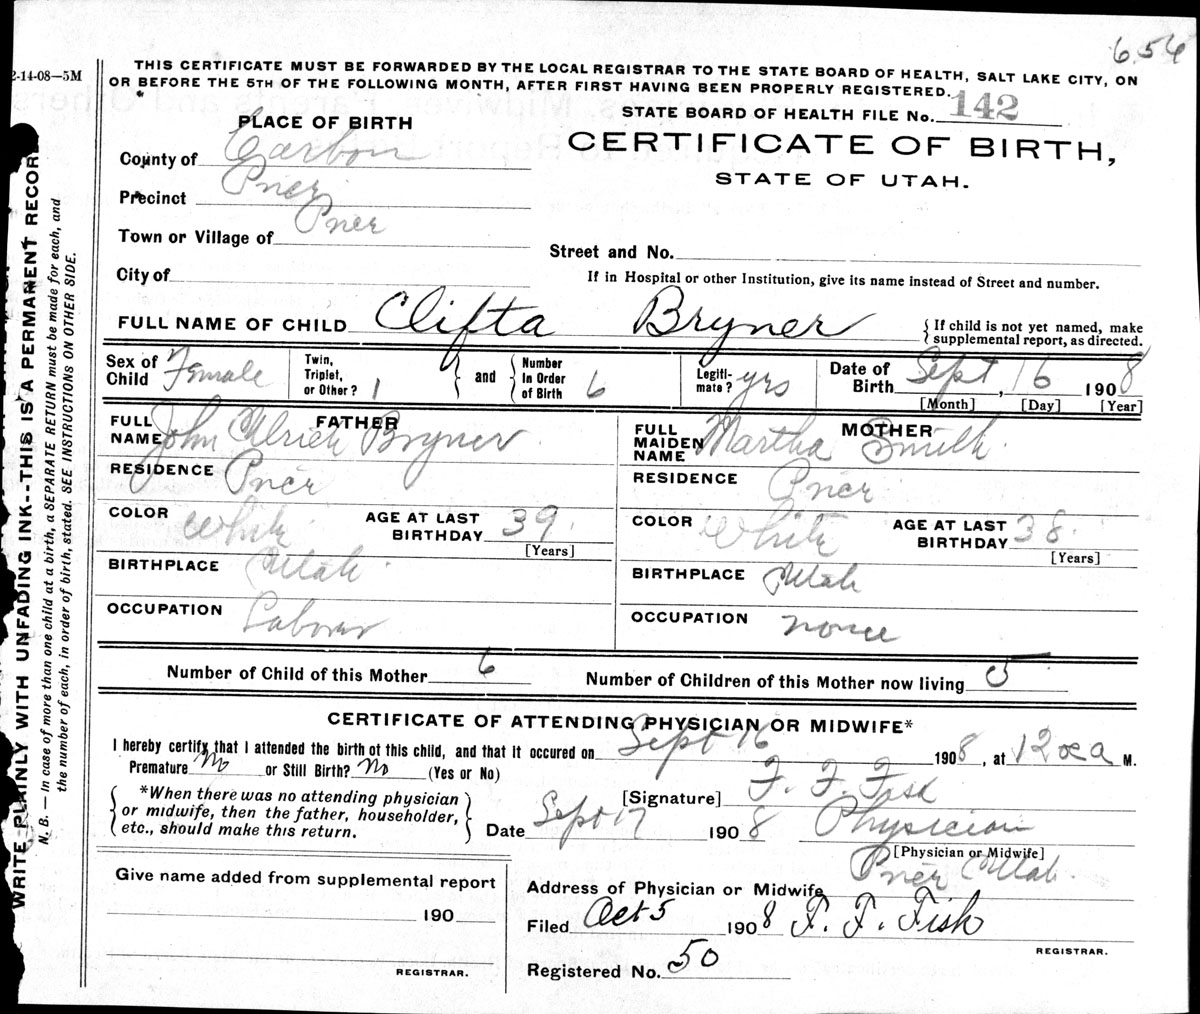 656
2-14-08—5M
THIS CERTIFICATE MUST BE FORWARDED BY THE LOCAL REGISTRAR TO THE STATE BOARD OF HEALTH, SALT LAKE CITY, ON
OR BEFORE THE 5TH OF THE FOLLOWING MONTH, AFTER FIRST HAVING BEEN PROPERLY REGISTERED.
STATE BOARD OF HEALTH FILE No. 142
PLACE OF BIRTH
CERTIFICATE OF BIRTH,
STATE OF UTAH.
County of Carbon
Precinct Price
Town or Village of Price
Street and No.
City of
If in Hospital or other Institution, give its name instead of Street and number.
FULL NAME OF CHILD Clifta Bryner
{If child is not yet named, make
supplemental report, as directed.
Sex of Child Female
Twin, Triplet, or Other? 1
and
Number in Order of Birth 6
Legiti-mate? yrs
Date of Birth Sept 16, 1908
[Month] [Day] [Year]
FATHER
FULL NAME John Ulrich Bryner
MOTHER
FULL MAIDEN NAME Martha Smith
RESIDENCE Price
RESIDENCE Price
COLOR White
AGE AT LAST BIRTHDAY 39
[Years]
COLOR White
AGE AT LAST BIRTHDAY 38
[Years]
BIRTHPLACE Utah
BIRTHPLACE Utah
OCCUPATION Laborer
OCCUPATION none
Number of Child of this Mother 6
Number of Children of this Mother now living 5
CERTIFICATE OF ATTENDING PHYSICIAN OR MIDWIFE*
I hereby certify that I attended the birth of this child, and that it occured on Sept 16 1908, at 12 M.
Premature No or Still Birth? No (Yes or No)
[Signature] F. F. Fisk
{*When there was no attending physician
or midwife, then the father, householder,
etc., should make this return.}
Date Sept 17 1908 Physician
[Physician or Midwife]
Give name added from supplemental report
190
REGISTRAR.
Address of Physician or Midwife Price Utah
Filed Oct 5 1908 F. F. Fisk
REGISTRAR.
Registered No. 50
WRITE PLAINLY WITH UNFADING INK--THIS IS A PERMANENT RECORD
N. B. — In case of more than one child at a birth, a SEPARATE RETURN must be made for each, and
the number of each, in order of birth, stated. SEE INSTRUCTIONS ON OTHER SIDE.